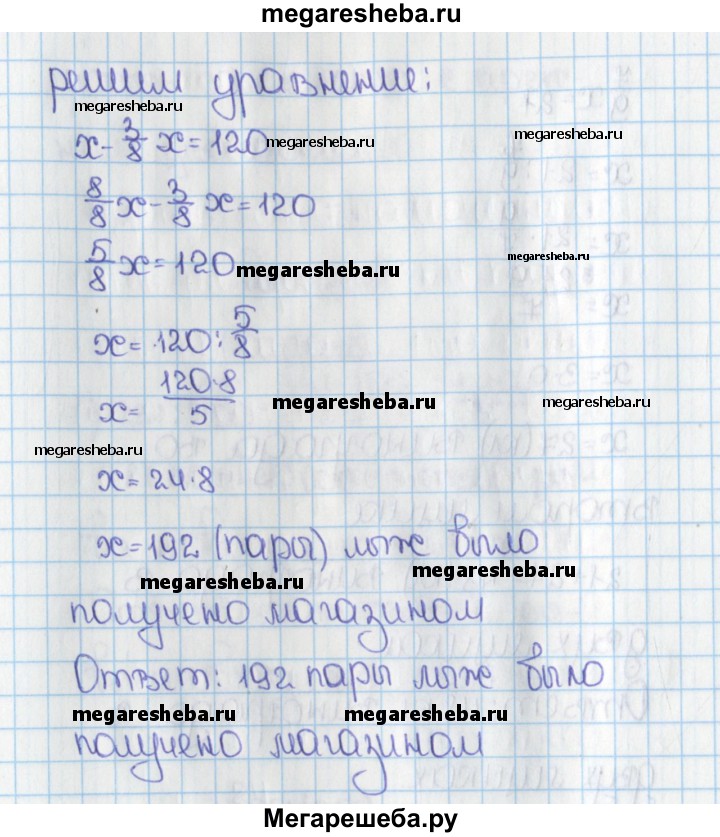 megaresheba.ru
решим уравнение:
megaresheba.ru
megaresheba.ru
x - 3/8 x = 120 megaresheba.ru
8/8 x - 3/8 x = 120
megaresheba.ru
5/8 x = 120 megaresheba.ru
x = 120 : 5/8
x = 120·8/5 megaresheba.ru megaresheba.ru
megaresheba.ru
x = 24·8
x = 192 (пары) лыж было
megaresheba.ru megaresheba.ru
получено магазином
Ответ: 192 пары лыж было
megaresheba.ru megaresheba.ru
получено магазином
Мегарешеба.ру